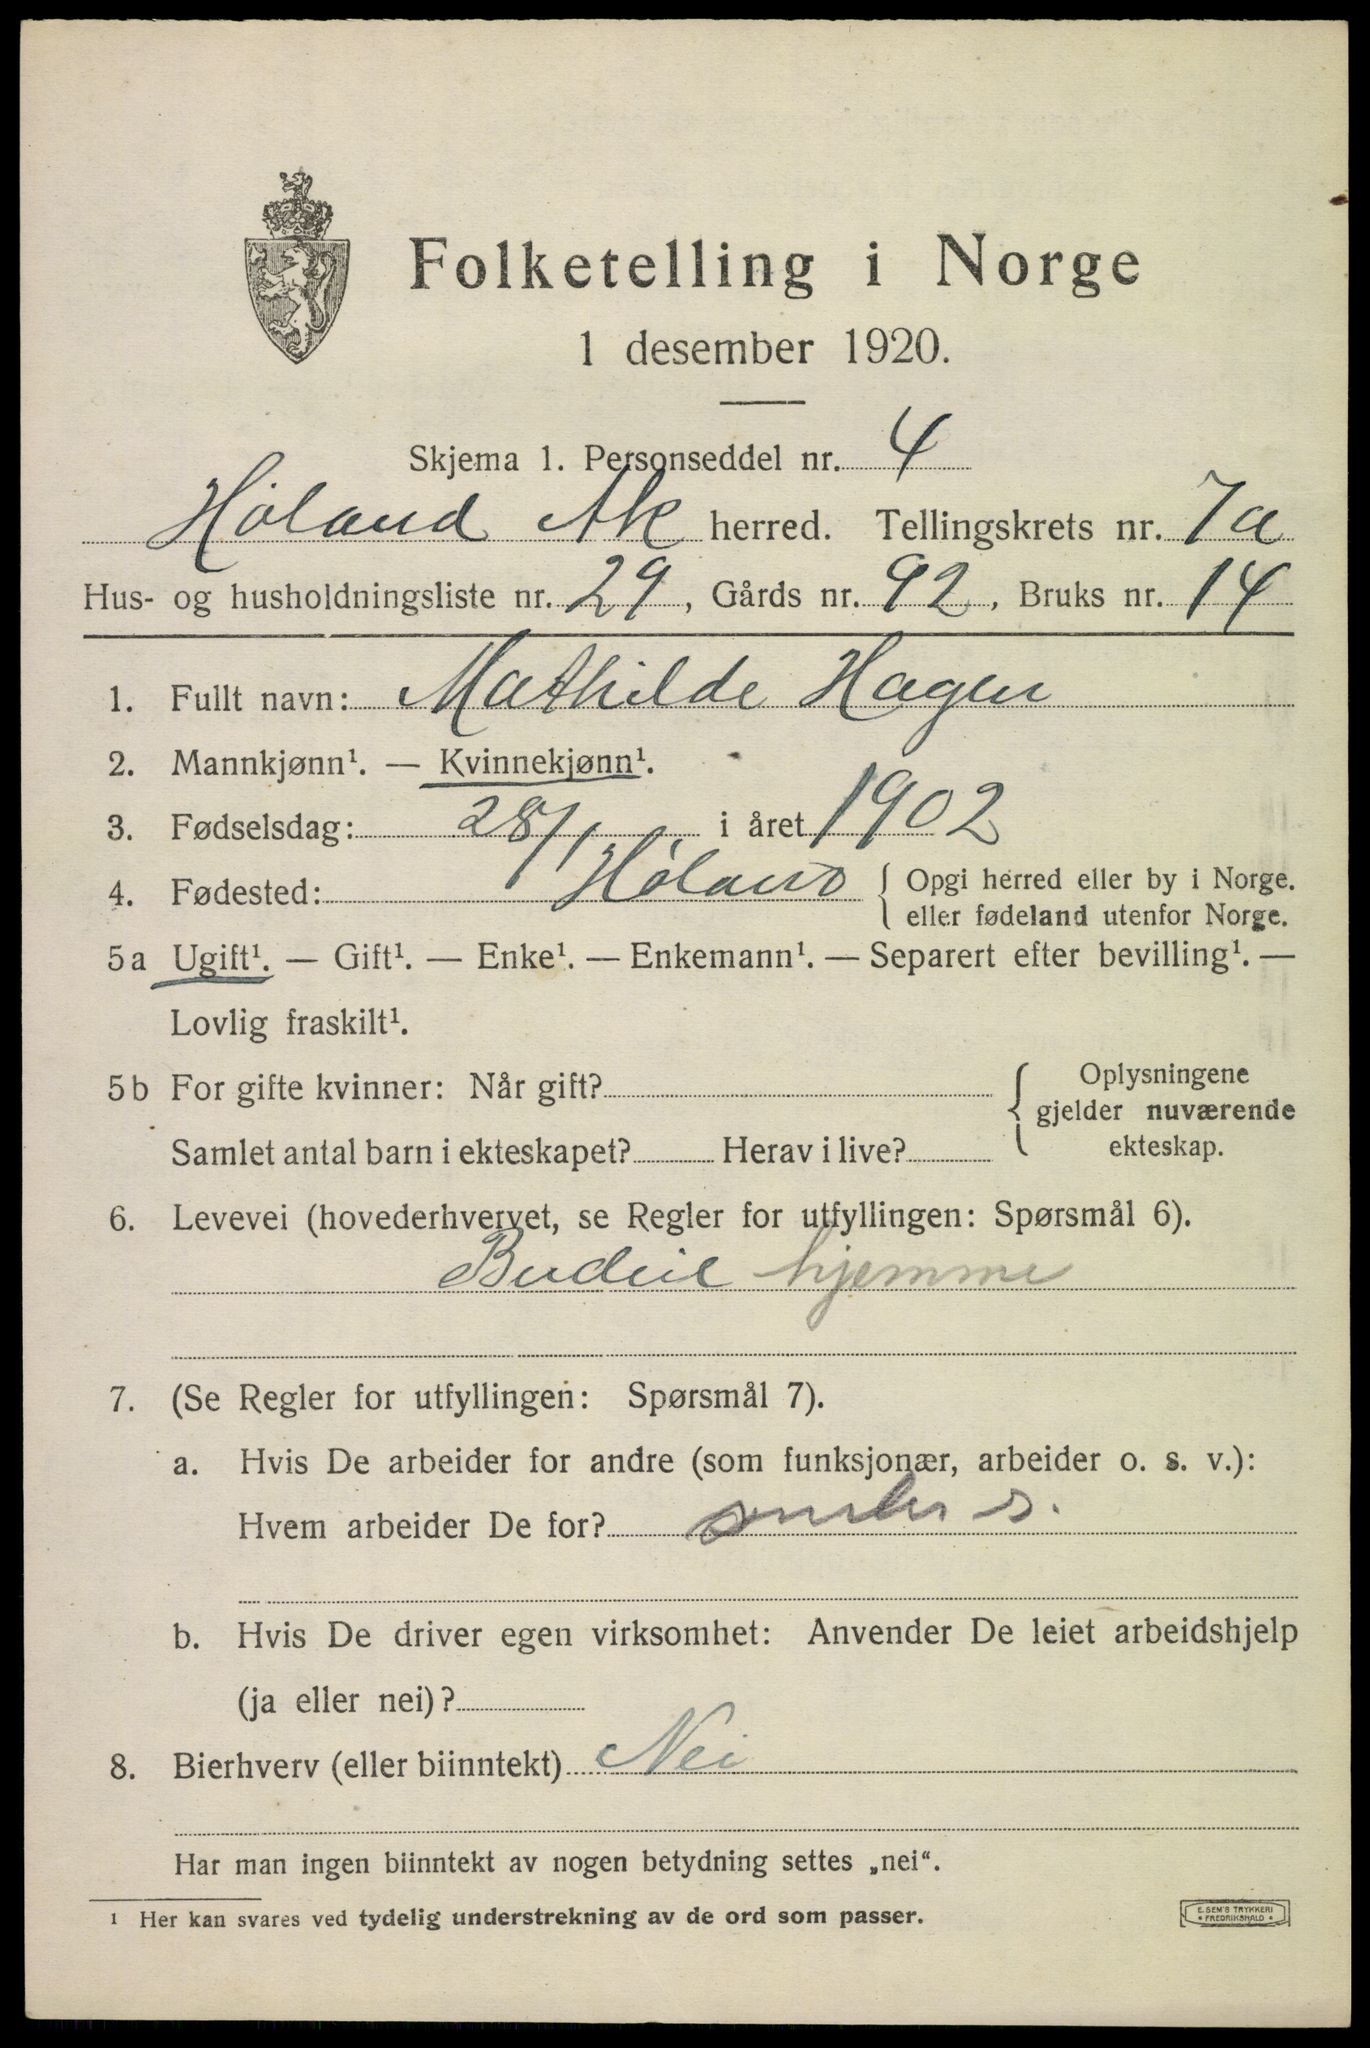 Folketelling i Norge
1 desember 1920.
Skjema 1. Personseddel nr. 4
Høland Ak herred. Tellingskrets nr. 7a
Hus- og husholdningsliste nr. 29, Gårds nr. 92, Bruks nr. 14
1. Fullt navn: Mathilde Hagen
2. Mannkjønn¹. — Kvinnekjønn¹.
3. Fødselsdag: 28/1 i året 1902
4. Fødested: Høland { Opgi herred eller by i Norge.
eller fødeland utenfor Norge.
5a Ugift¹. — Gift¹. — Enke¹. — Enkemann¹. — Separert efter bevilling¹. —
Lovlig fraskilt¹.
5b For gifte kvinner: Når gift? { Oplysningene
gjelder nuværende
ekteskap.
Samlet antal barn i ekteskapet? Herav i live?
6. Levevei (hovederhvervet, se Regler for utfyllingen: Spørsmål 6).
Budeie hjemme
7. (Se Regler for utfyllingen: Spørsmål 7).
a. Hvis De arbeider for andre (som funksjonær, arbeider o. s. v.):
Hvem arbeider De for?
b. Hvis De driver egen virksomhet: Anvender De leiet arbeidshjelp
(ja eller nei)?
8. Bierhverv (eller biinntekt) Nei
Har man ingen biinntekt av nogen betydning settes „nei“.
¹ Her kan svares ved tydelig understrekning av de ord som passer.
E. SEM'S TRYKKERI
• FREDRIKSHALD •